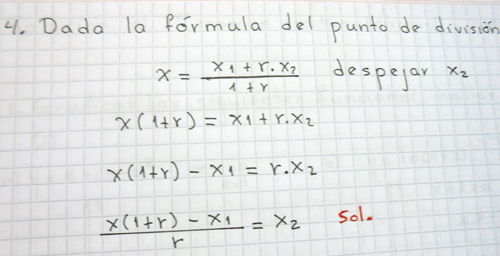 4. Dada la fórmula del punto de división
x = (x1 + r.x2)/(1 + r) despejar x2
x(1+r) = x1 + r.x2
x(1+r) - x1 = r.x2
(x(1+r) - x1)/r = x2 Sol.